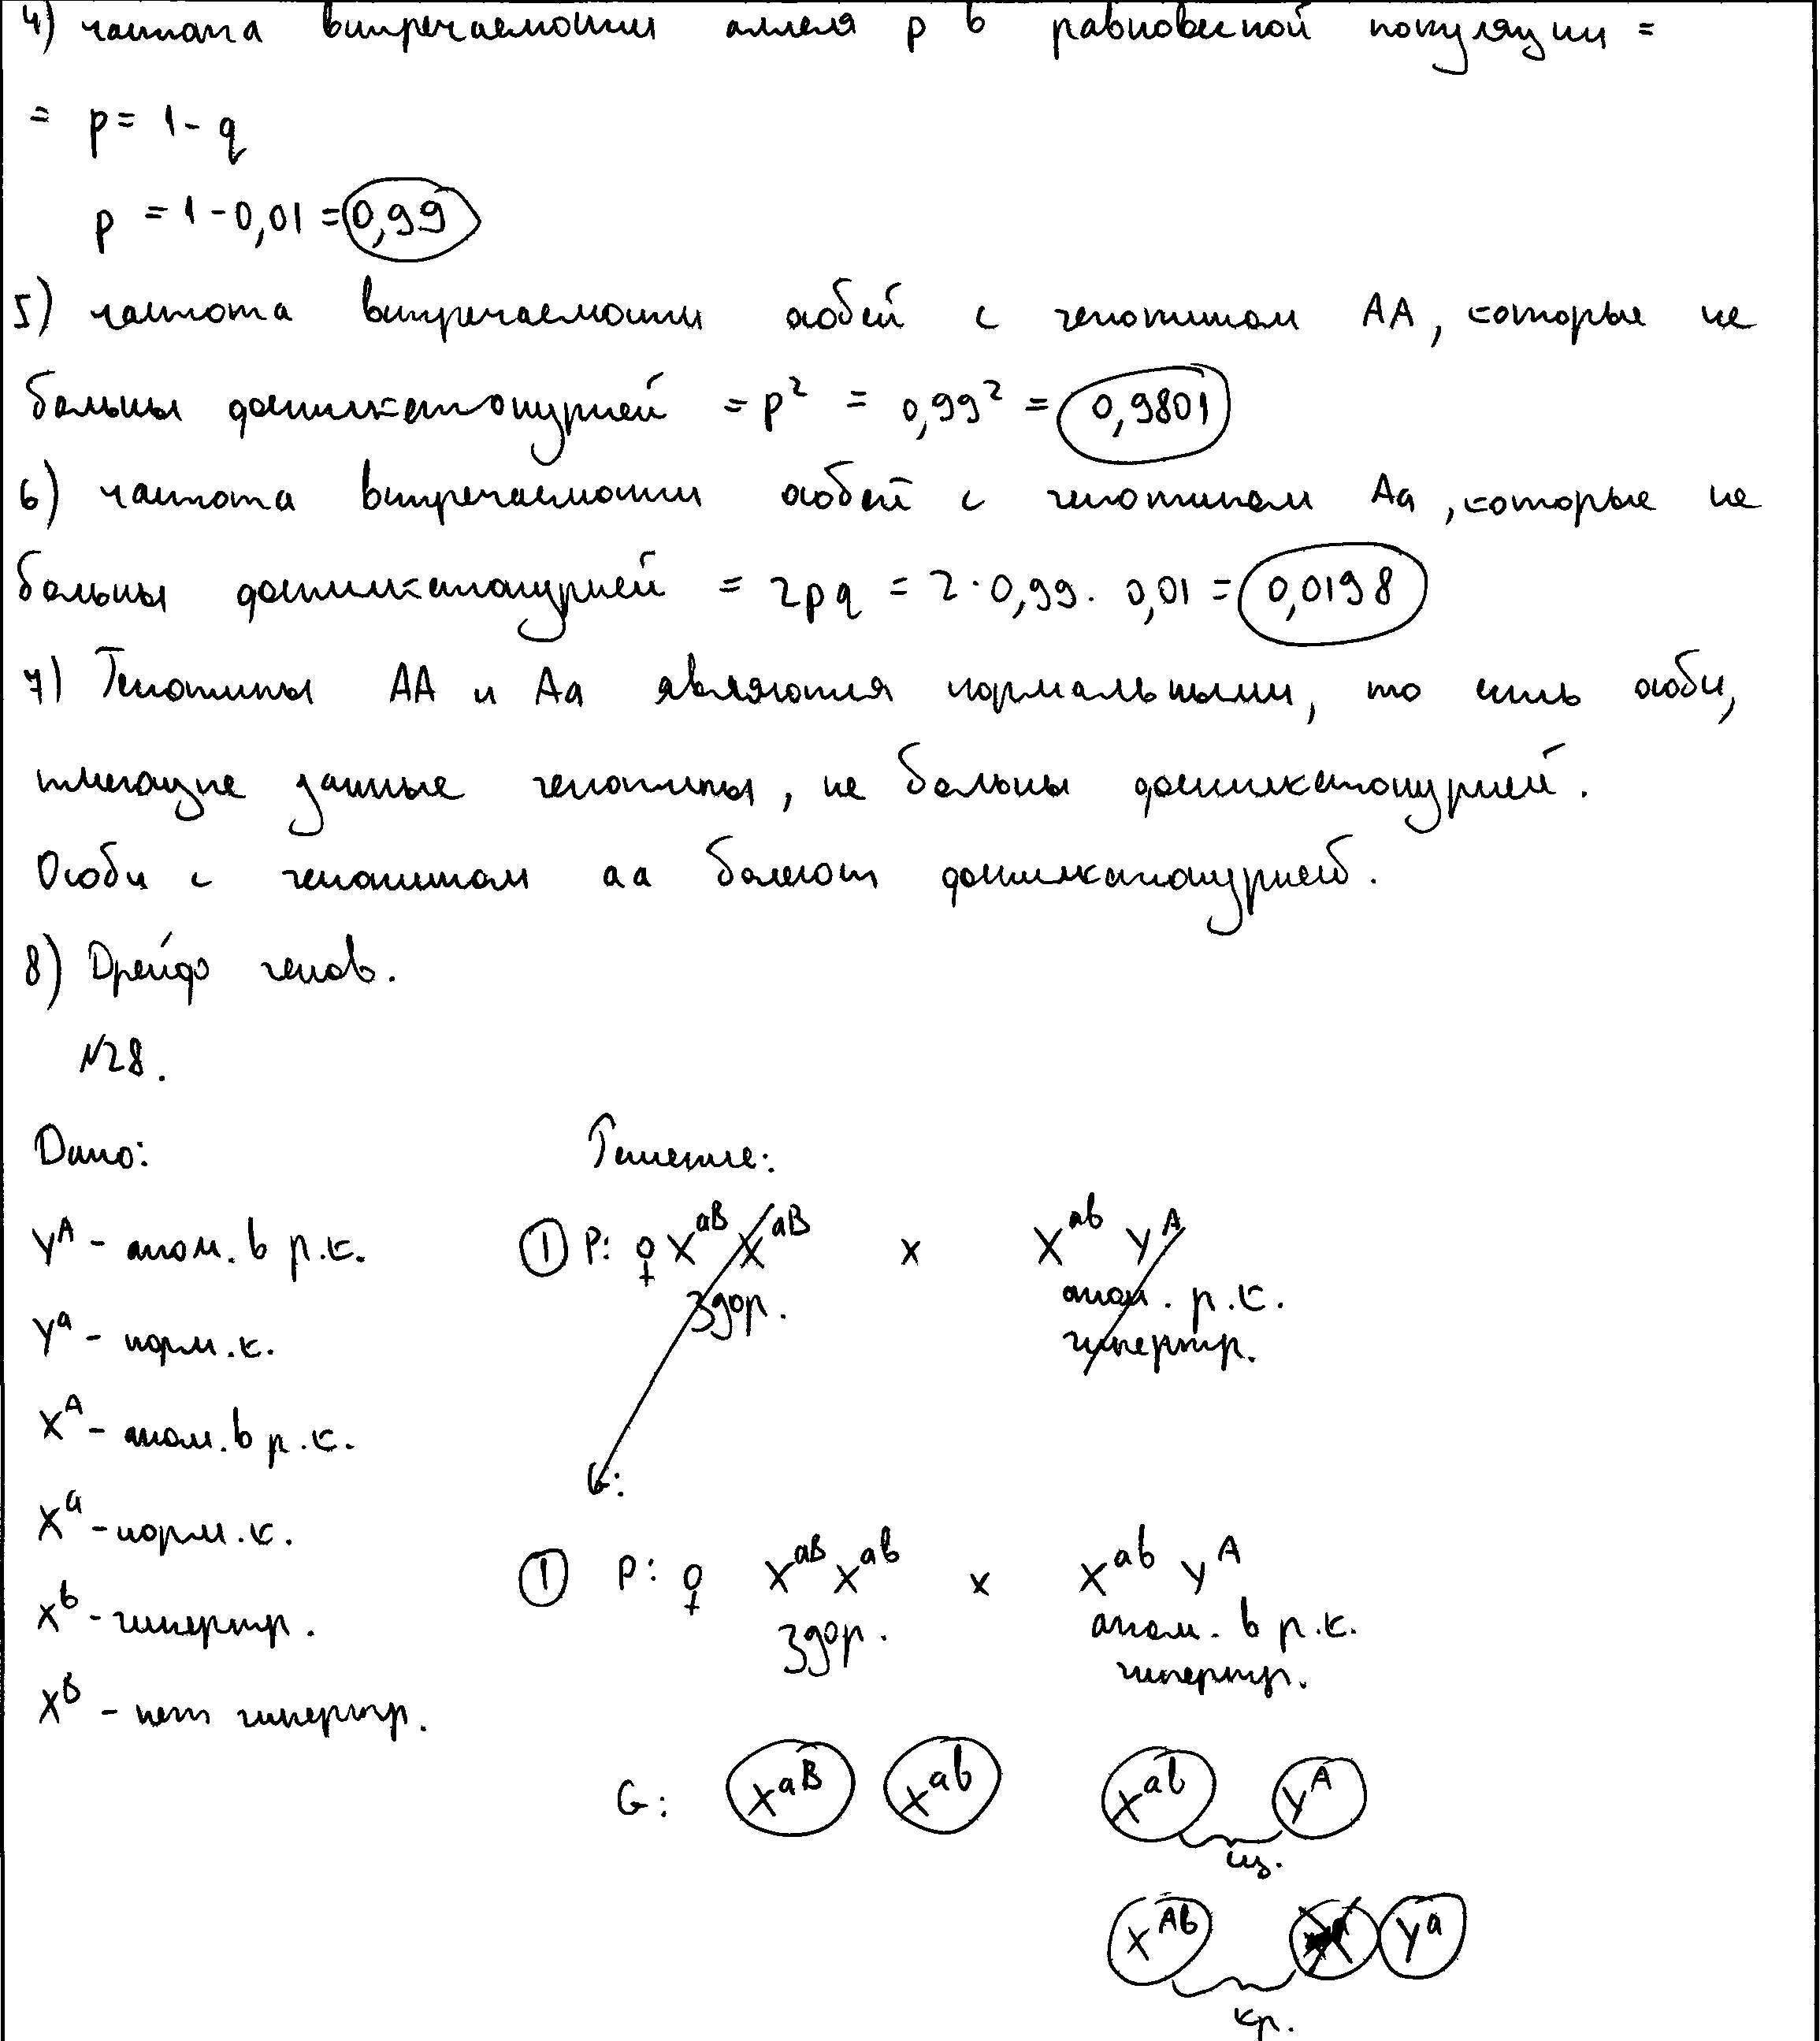 4) частота встречаемости аллеля p в равновесной популяции =
= p = 1 - q
p = 1 - 0,01 = 0,99
5) частота встречаемости особей с генотипом AA, которые не
больны фенилкетонурией = p² = 0,99² = 0,9801
6) частота встречаемости особей с генотипом Aa, которые не
больны фенилкетонурией = 2pq = 2 · 0,99 · 0,01 = 0,0198
7) Генотипы AA и Aa являются нормальными, то есть особи,
имеющие данные генотипы, не больны фенилкетонурией.
Особи с генотипом aa болеют фенилкетонурией.
8) Дрейф генов.
№28.
Дано: Решение:
Y^A - аном. в р.к. ① P: ♀ X^aB X^aB x X^ab Y^A
здор. аном. р.к.
Y^a - норм.к. гипертр.
X^A - аном. в р.к.
G:
X^a - норм.к.
① P: ♀ X^aB X^ab x X^ab Y^A
X^b - гипертр. здор. аном. в р.к.
гипертр.
X^B - нет гипертр.
G: X^aB X^ab X^ab Y^A
X^Ab Y^a
кр.